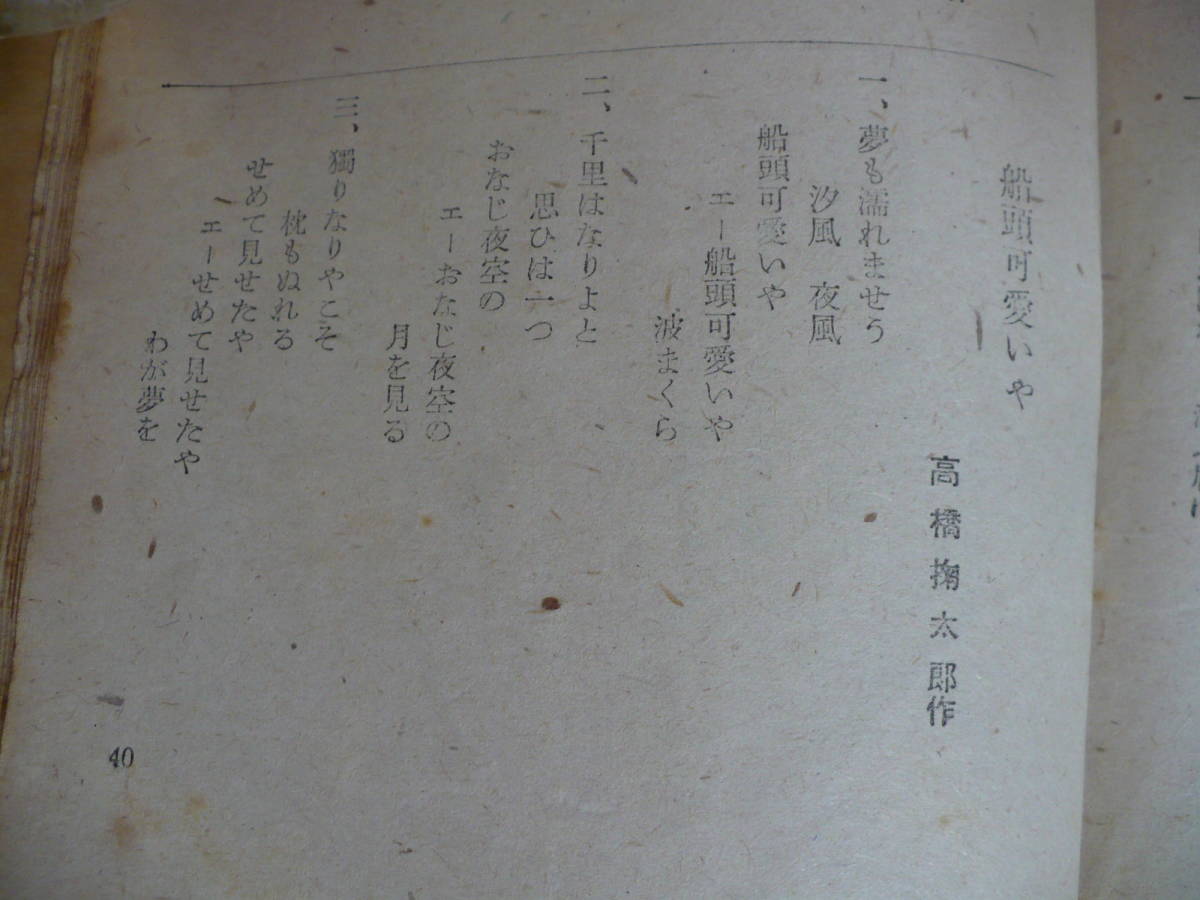 船頭可愛いや
高橋掬太郎作
一、夢も濡れませう
汐風　夜風
船頭可愛いや
エー船頭可愛いや
波まくら
二、千里はなりよと
思ひは一つ
おなじ夜空の
エーおなじ夜空の
月を見る
三、獨りなりやこそ
枕もぬれる
せめて見せたや
エーせめて見せたや
わが夢を
40